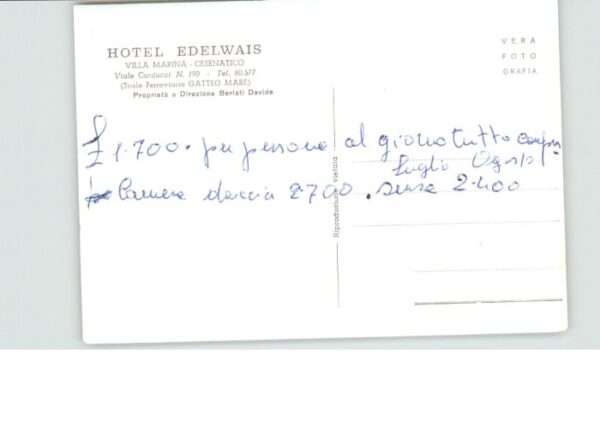 HOTEL EDELWAIS
VILLA MARINA - CESENATICO
Viale Carducci N. 190 - Tel. 80.577
(Scalo Ferroviario GATTEO MARE)
Proprietà e Direzione Berlati Davide
VERA
FOTO
GRAFIA
£ 1.700. per persona al giorno tutto compr
Luglio Agosto
Camera doccia 2700. senza 2.400
Riproduzione vietata